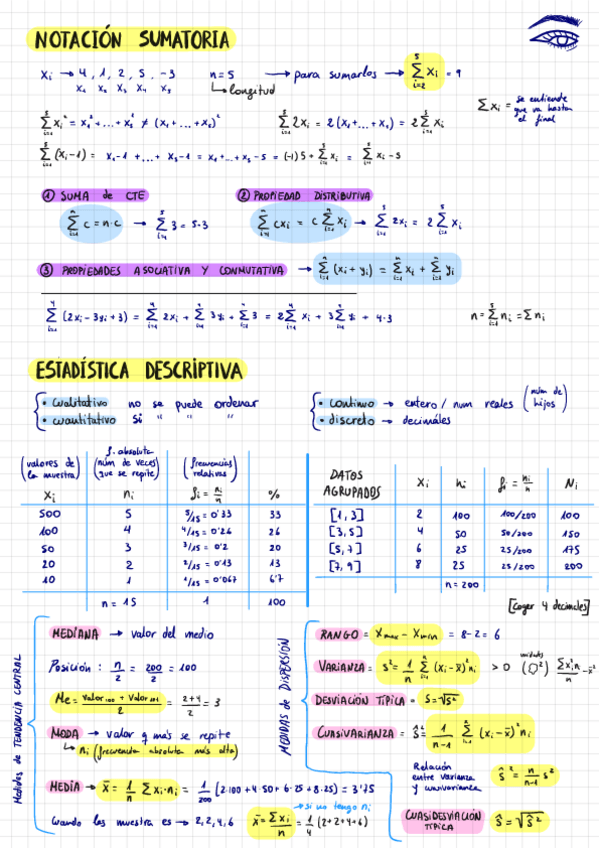 NOTACIÓN SUMATORIA
Xi → 4, 1, 2, 5, -3   n=5 → para sumarlos → ∑_{i=2}^{5} Xi = 9
X₁ X₂ X₃ X₄ X₅   ↳ longitud
∑Xi = se entiende que va hasta el final
∑_{i=1}^{5} Xi² = X₁² + ... + X₅² ≠ (X₁ + ... + X₅)²   ∑_{i=1}^{5} 2Xi = 2(X₁ + ... + X₅) = 2∑_{i=1}^{5} Xi
∑_{i=1}^{5} (Xi - 1) = X₁ - 1 + ... + X₅ - 1 = X₁ + ... + X₅ - 5 = (-1)5 + ∑_{i=1}^{5} Xi = ∑_{i=1}^{5} Xi - 5
① SUMA de CTE   ② PROPIEDAD DISTRIBUTIVA
∑_{i=1}^{n} c = n·c → ∑_{i=1}^{5} 3 = 5·3   ∑_{i=1}^{n} cxi = c∑_{i=1}^{n} Xi → ∑_{i=1}^{5} 2xi = 2∑_{i=1}^{5} Xi
③ PROPIEDADES ASOCIATIVA Y CONMUTATIVA → ∑_{i=1}^{n} (xi + yi) = ∑_{i=1}^{n} xi + ∑_{i=1}^{n} yi
∑_{i=1}^{4} (2xi - 3yi + 3) = ∑_{i=1}^{4} 2xi + ∑_{i=1}^{4} 3yi + ∑_{i=1}^{4} 3 = 2∑_{i=1}^{4} Xi + 3∑_{i=1}^{4} yi + 4·3   n = ∑_{i=1}^{5} ni = ∑ni
ESTADÍSTICA DESCRIPTIVA
• cualitativo no se puede ordenar
• cuantitativo Si " " "
• continuo → entero / num reales (núm de hijos)
• discreto → decimáles
(valores de la muestra)   f. absoluta (núm de veces que se repite)   (frecuencias relativas)
Xi   ni   fi = ni/n   %
500   5   5/15 = 0'33   33
100   4   4/15 = 0'26   26
50   3   3/15 = 0'2   20
20   2   2/15 = 0'13   13
10   1   1/15 = 0'067   6'7
n = 15   1   100
DATOS AGRUPADOS   Xi   ni   fi = ni/n   Ni
[1, 3]   2   100   100/200   100
[3, 5]   4   50   50/200   150
[5, 7]   6   25   25/200   175
[7, 9]   8   25   25/200   200
n = 200
[Coger 4 decimales]
Medidas de TENDENCIA CENTRAL
MEDIANA → valor del medio
Posición: n/2 = 200/2 = 100
Me = (valor₁₀₀ + valor₁₀₁)/2 = (2+4)/2 = 3
MODA → valor q más se repite
↳ ni (frecuencia absoluta más alta)
MEDIA → x̄ = 1/n ∑xi·ni = 1/200 (2·100 + 4·50 + 6·25 + 8·25) = 3'75
→ si no tengo ni
Cuando las muestra es → 2, 2, 4, 6   x̄ = ∑xi/n = 1/4 (2+2+4+6)
MEDIDAS de DISPERSIÓN
RANGO = Xmax - Xmin = 8 - 2 = 6
VARIANZA = s² = 1/n ∑_{i=1}^{n} (xi - x̄)² ni > 0 ( ²) ∑xi²ni/n - x̄²
unidades
DESVIACIÓN TÍPICA = S = √s²
CUASIVARIANZA = Ŝ² = 1/(n-1) ∑_{i=1}^{n} (xi - x̄)² ni
Relación entre varianza y cuasivarianza   ŝ² = n/(n-1) s²
CUASIDESVIACIÓN TÍPICA   Ŝ = √Ŝ²